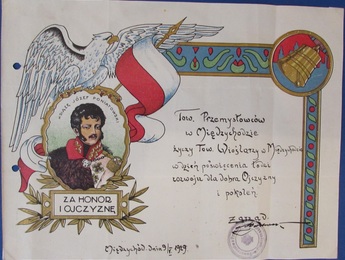 KSIĄŻĘ JÓZEF PONIATOWSKI
ZA HONOR
I OJCZYZNĘ
Tow. Przemysłowców
w Międzychodzie
życzy Tow. Wioślarzy w Międzychodzie
w dzień poświęcenia łodzi
rozwoju dla dobra Ojczyzny
i pokoleń
Zarząd
Międzychód dnia 1929